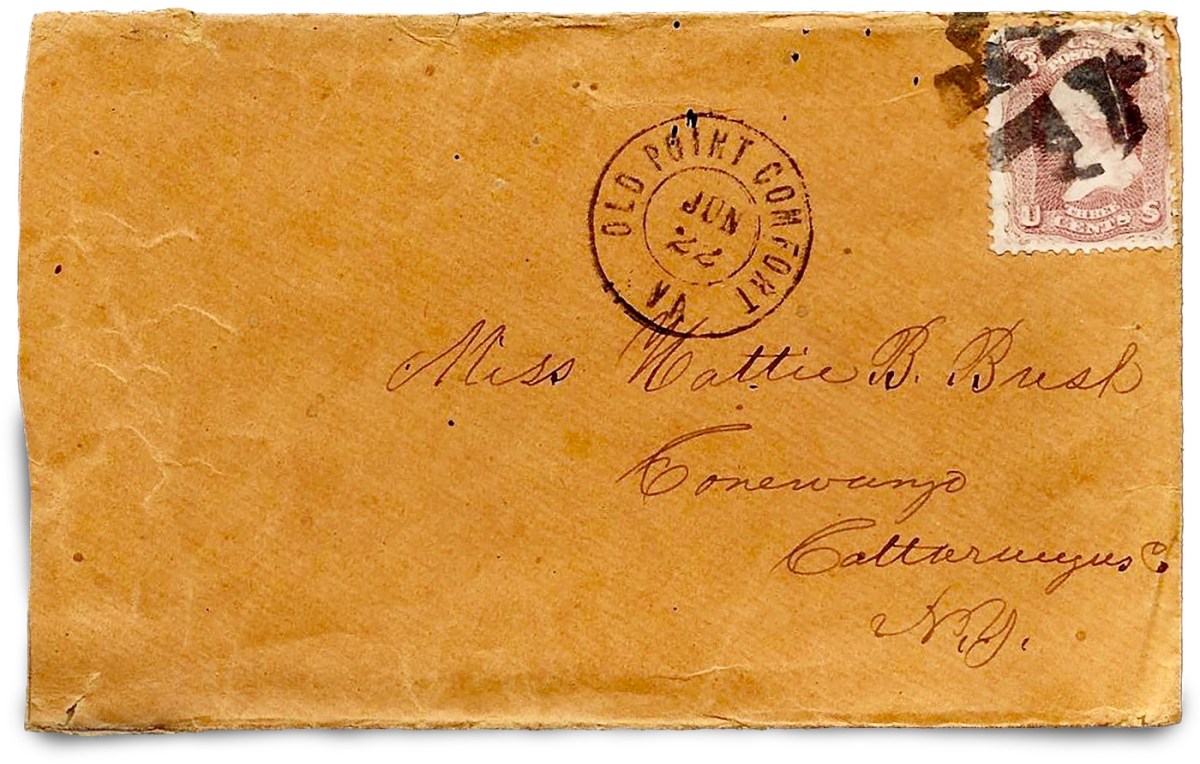 OLD POINT COMFORT VA
JUN
22
3
U THREE S
CENTS
Miss Hattie B. Bush
Conewango
Cattaraugus Co.
N.Y.